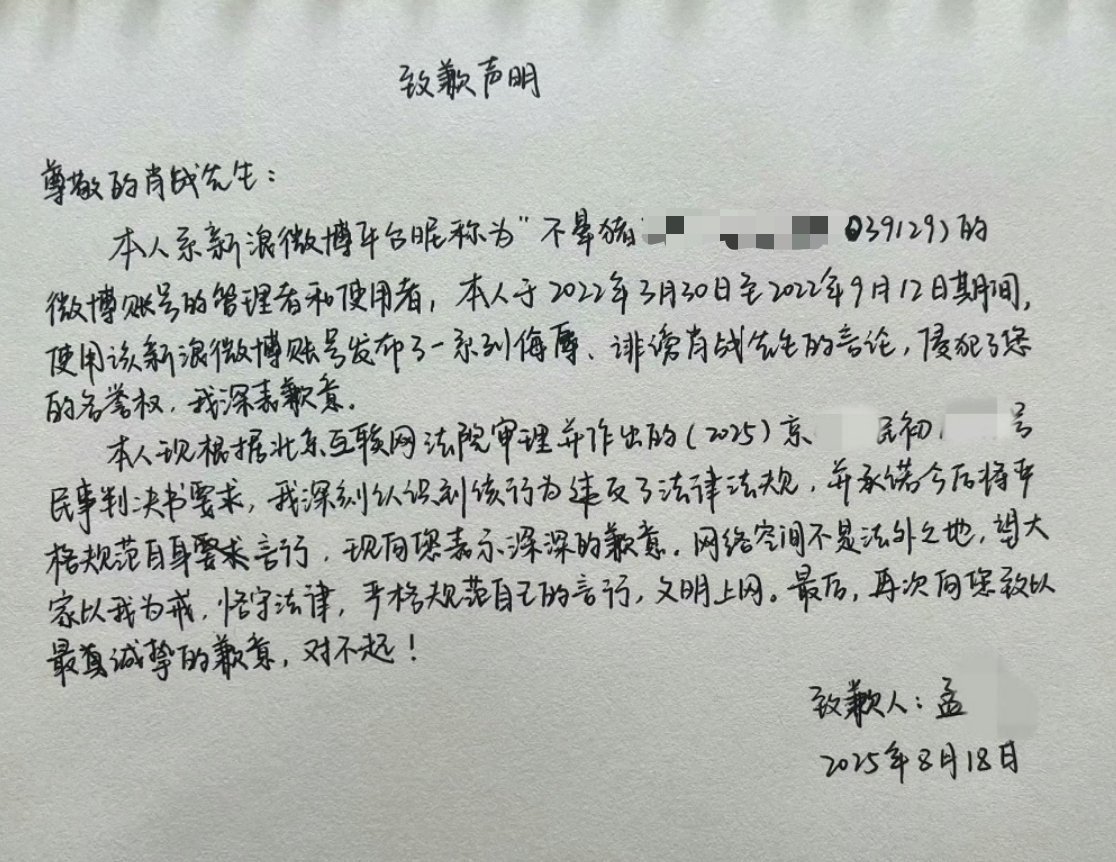 致歉声明
尊敬的肖战先生:
本人系新浪微博平台昵称为“不晕猪 039129)的
微博账号的管理者和使用者,本人于2022年3月30日至2022年9月12日期间,
使用该新浪微博账号发布了一系列侮辱、诽谤肖战先生的言论,侵犯了您
的名誉权,我深表歉意。
本人现根据北京互联网法院审理并作出的(2025)京 民初 号
民事判决书要求,我深刻认识到该行为违反了法律法规,并承诺今后将严
格规范自身要求言行,现向您表示深深的歉意。网络空间不是法外之地,望大
家以我为戒,恪守法律,严格规范自己的言行,文明上网。最后,再次向您致以
最真诚挚的歉意,对不起!
致歉人:孟
2025年8月18日